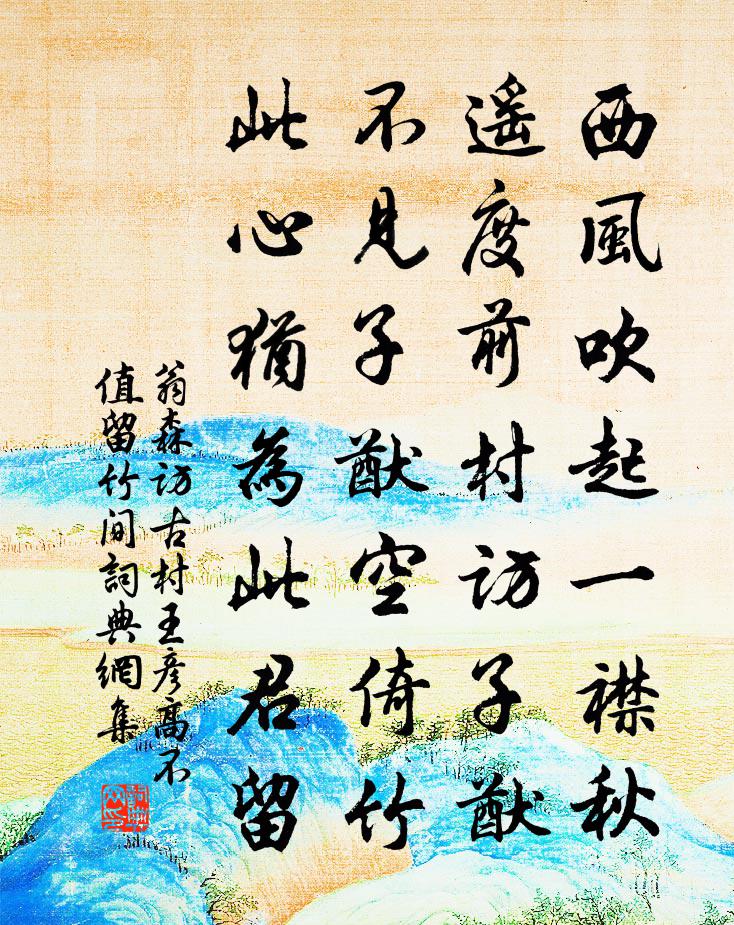 西風吹起一襟秋
遥度前村訪子猷
不見子猷空倚竹
此心猶為此君留
翁森訪古村王彦高不
值留竹间詞典網集